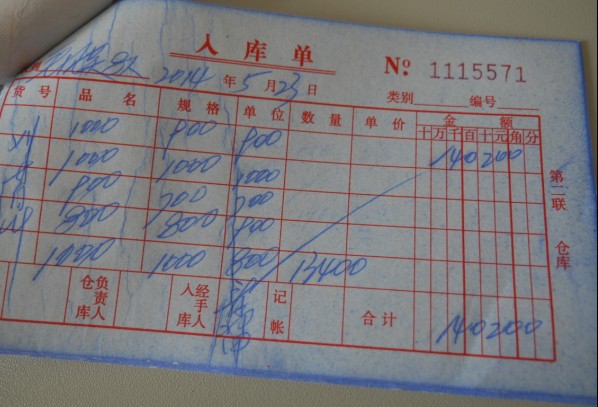 入库单
№ 1115571
2014年5月23日
类别 编号
货号 品名 规格 单位 数量 单价 金额
十万千百十元角分
1000 900 900 140200
1000 1000 1000
900 700 700
800 800 900
1000 1000 800 13400
仓库负责人 入库经手人 记帐 合计 140200
第二联 仓库